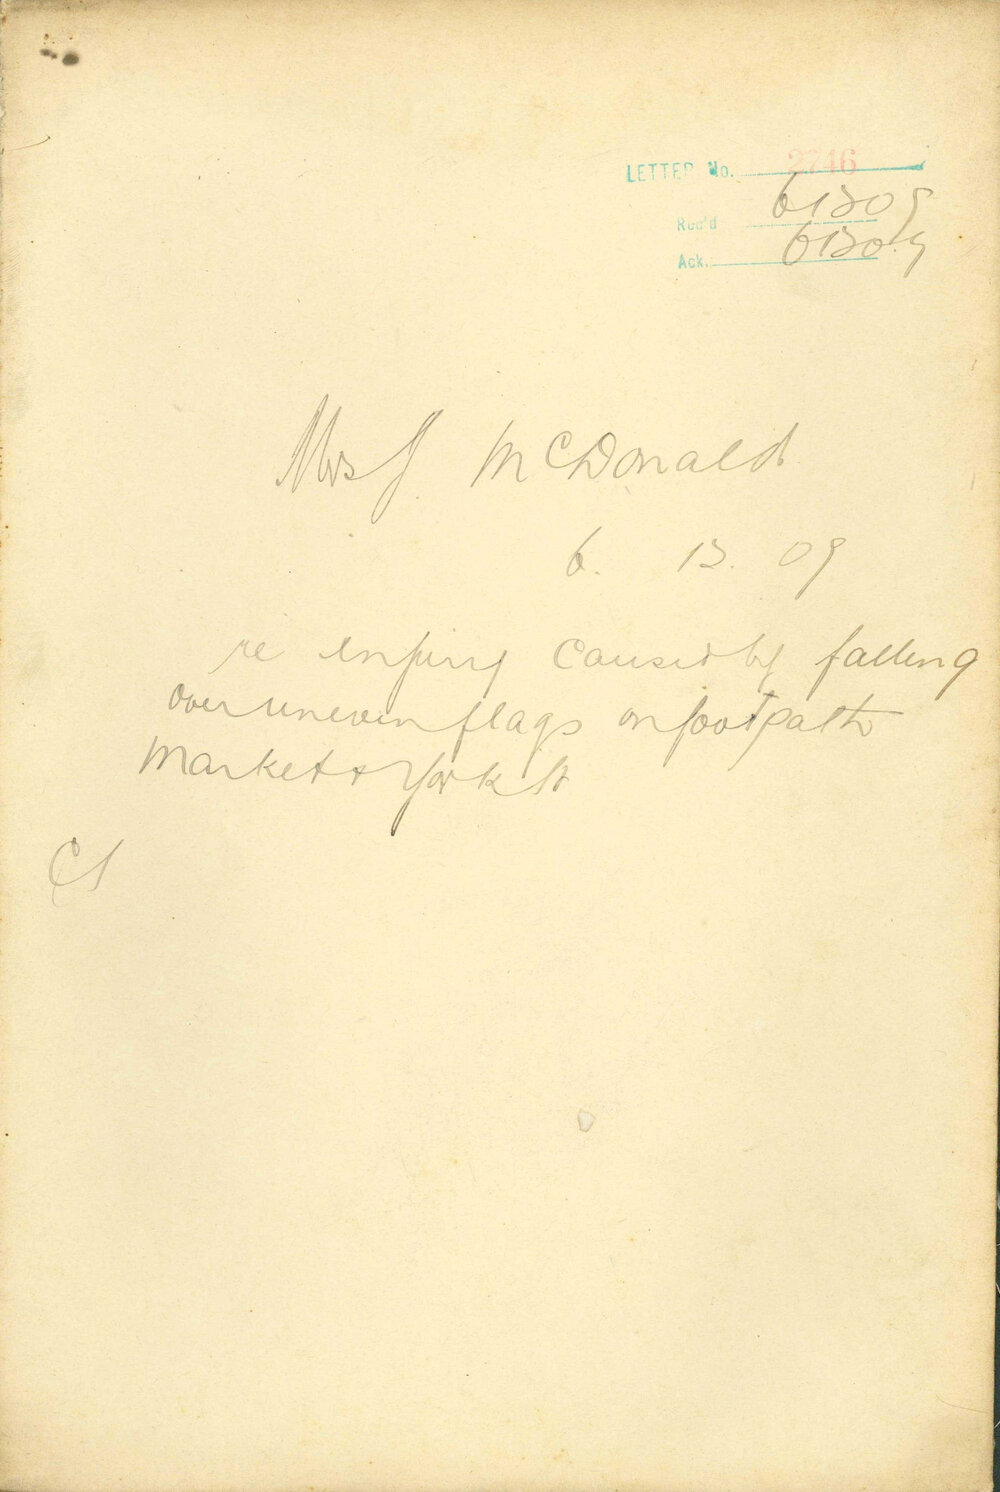 LETTER No. 2746
Rec'd 6 12 09
Ack. 6 12 09
Mrs J. McDonald
6. 12. 09
re injury caused by falling
over uneven flags on footpath
Market & York St